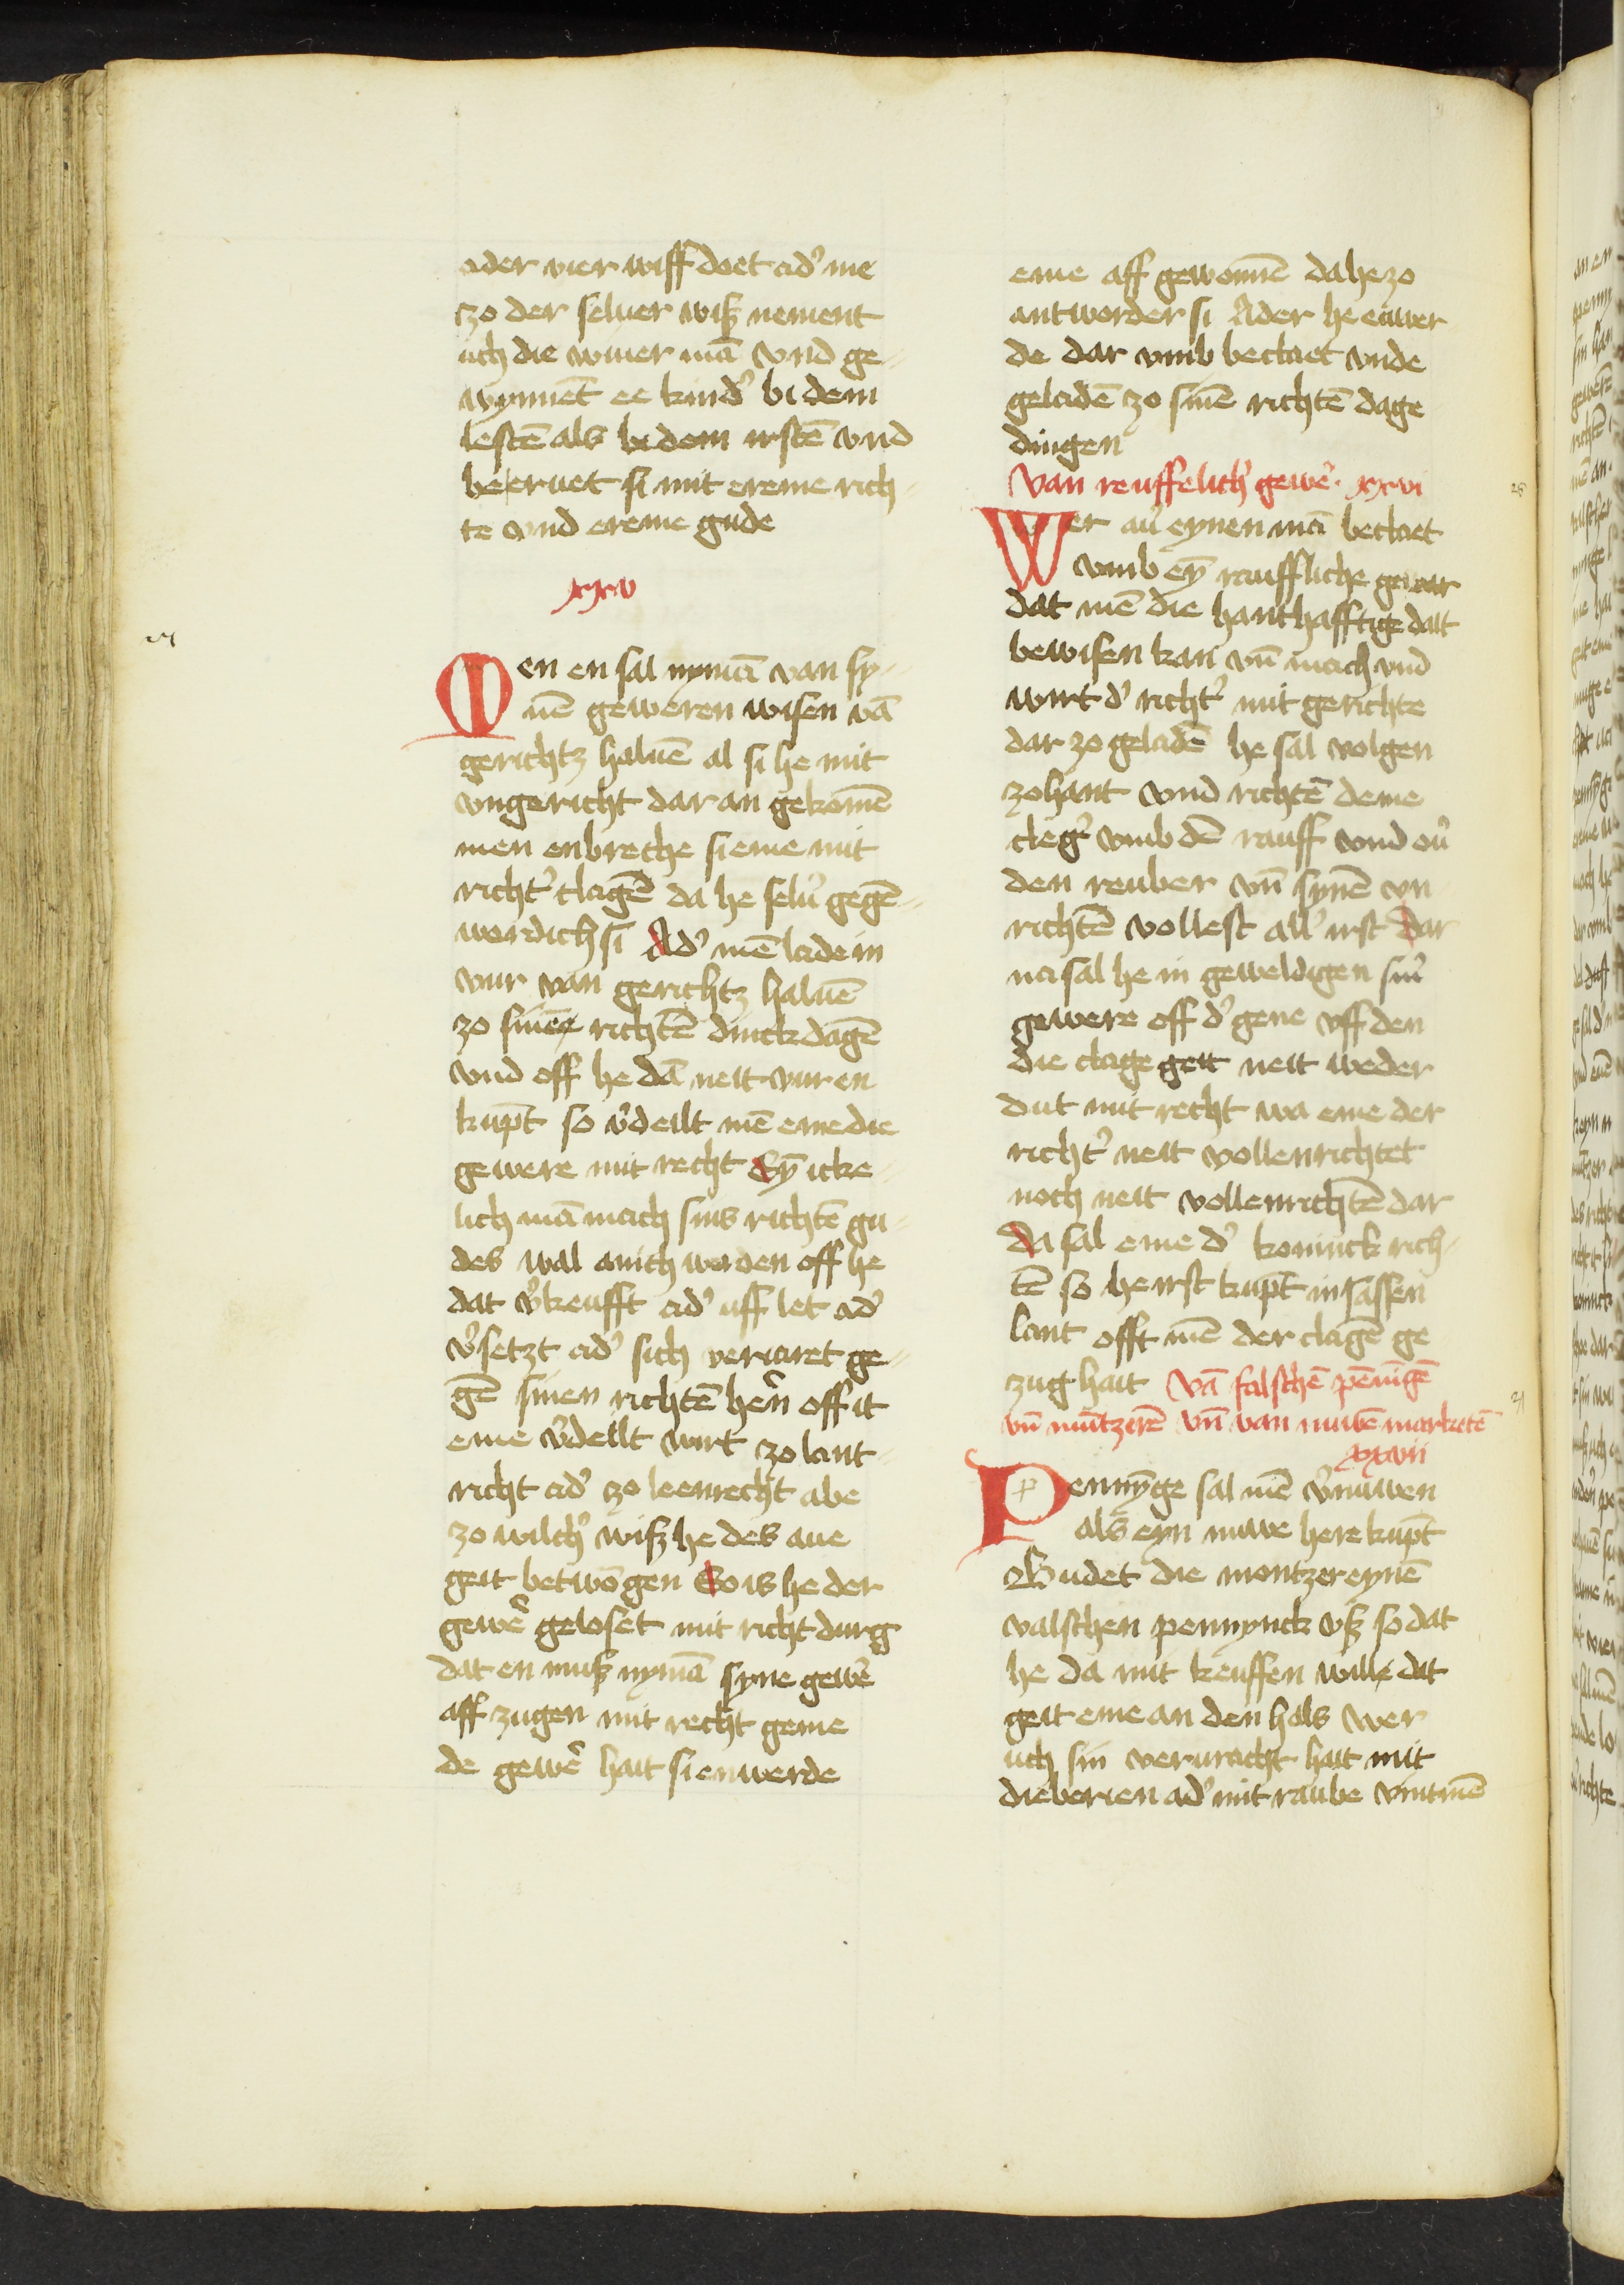 oder vier wiff doet ad' me
zo der seluer wiß nement
uch die wiuer mā vnd ge-
wynnēt ee kind' bi dem
lestē als bi dem irstē vnd
beeruet si mit ereme rich-
te vnd ereme gude
xxv
Men en sal nymā van sy-
nē geweren wisen vā
gerichtz haluē al si he mit
vngericht dar an gekomē
men enbreche si eme mit
richt' clagē da he selu' gegē-
wordich si Ad' mē lade in
vur van gerichtz haluē
zo sinē richtē dinckdagē
vnd off he dā neit vur en
kupt so v'deilt mē eme die
gewere mit recht Eyn icke-
lich mā mach sins richtē gu-
des wal anich werden off he
dat v'keufft ad' uff let ad'
v'setzt ad' sich veriaret ge-
gē sinen richtē hen' off it
eme v'deilt wirt zo lant-
richt ad' zo leenrecht abe
zo wilch' wiß he des aue
geit betwōgen So is he der
gewē' geloset mit richt durg
dat en muß nymā syne gewē'
aff zugen mit recht geme
de gewē' hait si enwerde
eme aff gewonnē da he zo
antworder si Ader he enwer-
de dar vmb beclaet vnde
geladē zo sinē richtē dage
dingen
Van reuffelich' gewē' · xxvi
26
Wer au' eynen mā beclaet
vmb eyn rauffliche gewar
dat mē die hanthafftige dait
bewisen kan vn̄ mach vnd
wirt d' richt' mit gerichte
dar zo geladē he sal volgen
zohant vnd richtē deme
cleg' vmb dē rauff vnd ou'
den reuber vn̄ synē vn
richtē vollest all' irst dar
na sal he in geweldigen sin'
gewere off d' gene vff den
die clage geit neit weder
dut mit recht wa eme der
richt' neit vollenrichtet
noch neit vollenrichtē dar
Da sal eme d' koninck rich-
tē so he irst kupt in sassen
lant offt mē der clagē ge
zug hait Vā falschē pēnigē
vn̄ mūtzerē vn̄ van nuwē marketē
xxvii
Pennynge sal mē v'nuwen
als eyn nuwe here kupt
Budet die montzer eynē
valschen pennynck vß so dat
he da mit keuffen wille dat
geit eme an den hals wer
uch sin verwracht hait mit
dieberien ad' mit raube vint mē